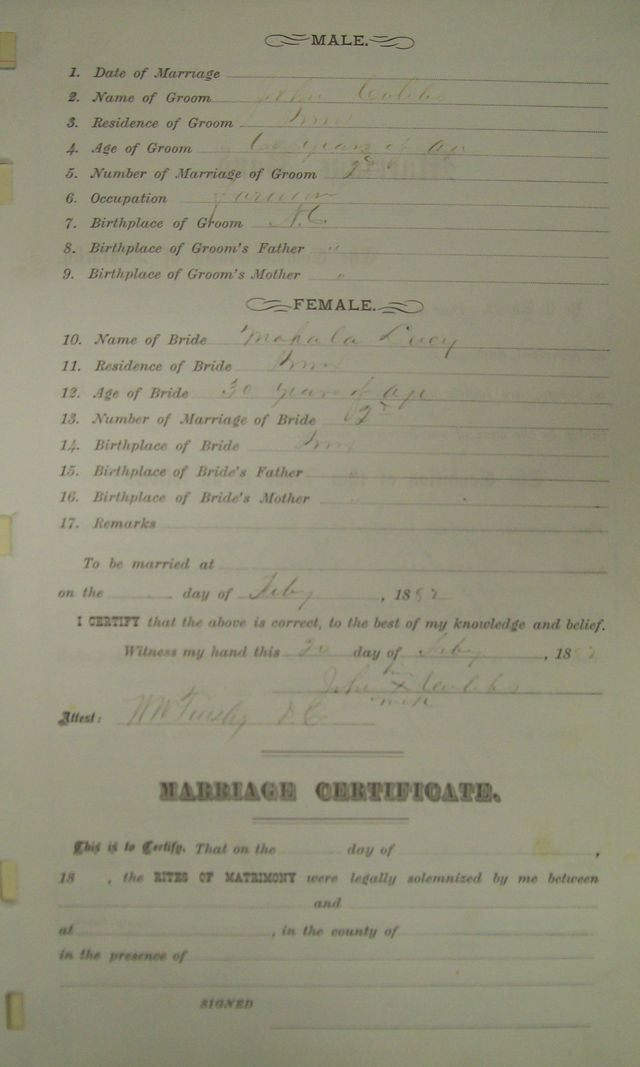 MALE.
1. Date of Marriage
2. Name of Groom John Cobbs
3. Residence of Groom
4. Age of Groom 60 years of age
5. Number of Marriage of Groom 2d
6. Occupation farmer
7. Birthplace of Groom N.C
8. Birthplace of Groom's Father "
9. Birthplace of Groom's Mother "
FEMALE.
10. Name of Bride Mahala Lucy
11. Residence of Bride
12. Age of Bride 30 years of age
13. Number of Marriage of Bride 2d
14. Birthplace of Bride
15. Birthplace of Bride's Father
16. Birthplace of Bride's Mother "
17. Remarks
To be married at
on the day of Feby , 1882
I CERTIFY that the above is correct, to the best of my knowledge and belief.
Witness my hand this 20 day of Feby , 1882
his
John X Cobbs
mark
Attest: D C
MARRIAGE CERTIFICATE.
This is to Certify, That on the day of ,
18 , the RITES OF MATRIMONY were legally solemnized by me between
and
at , in the county of
in the presence of
SIGNED